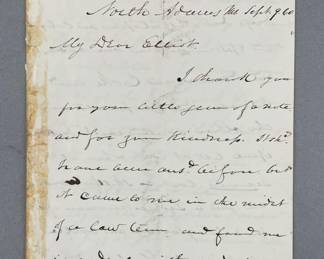 North Adams Ms Sept 9 60
My Dear Elliot
I thank you
for your little gem of a note
and for your kindness. It shd.
have been ansd. before but
it came to me in the midst
of a law term and found me